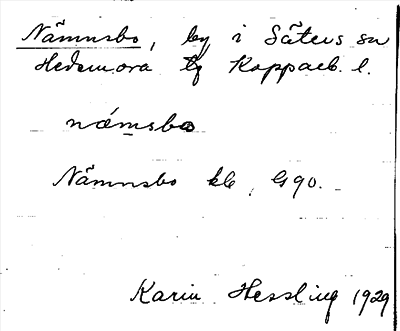 Nämnsbo, by i Säters sn
Hedemora tg Koppaeb. l.
námsbo
Nämnsbo kb, G90.
Karin Hessling 1929